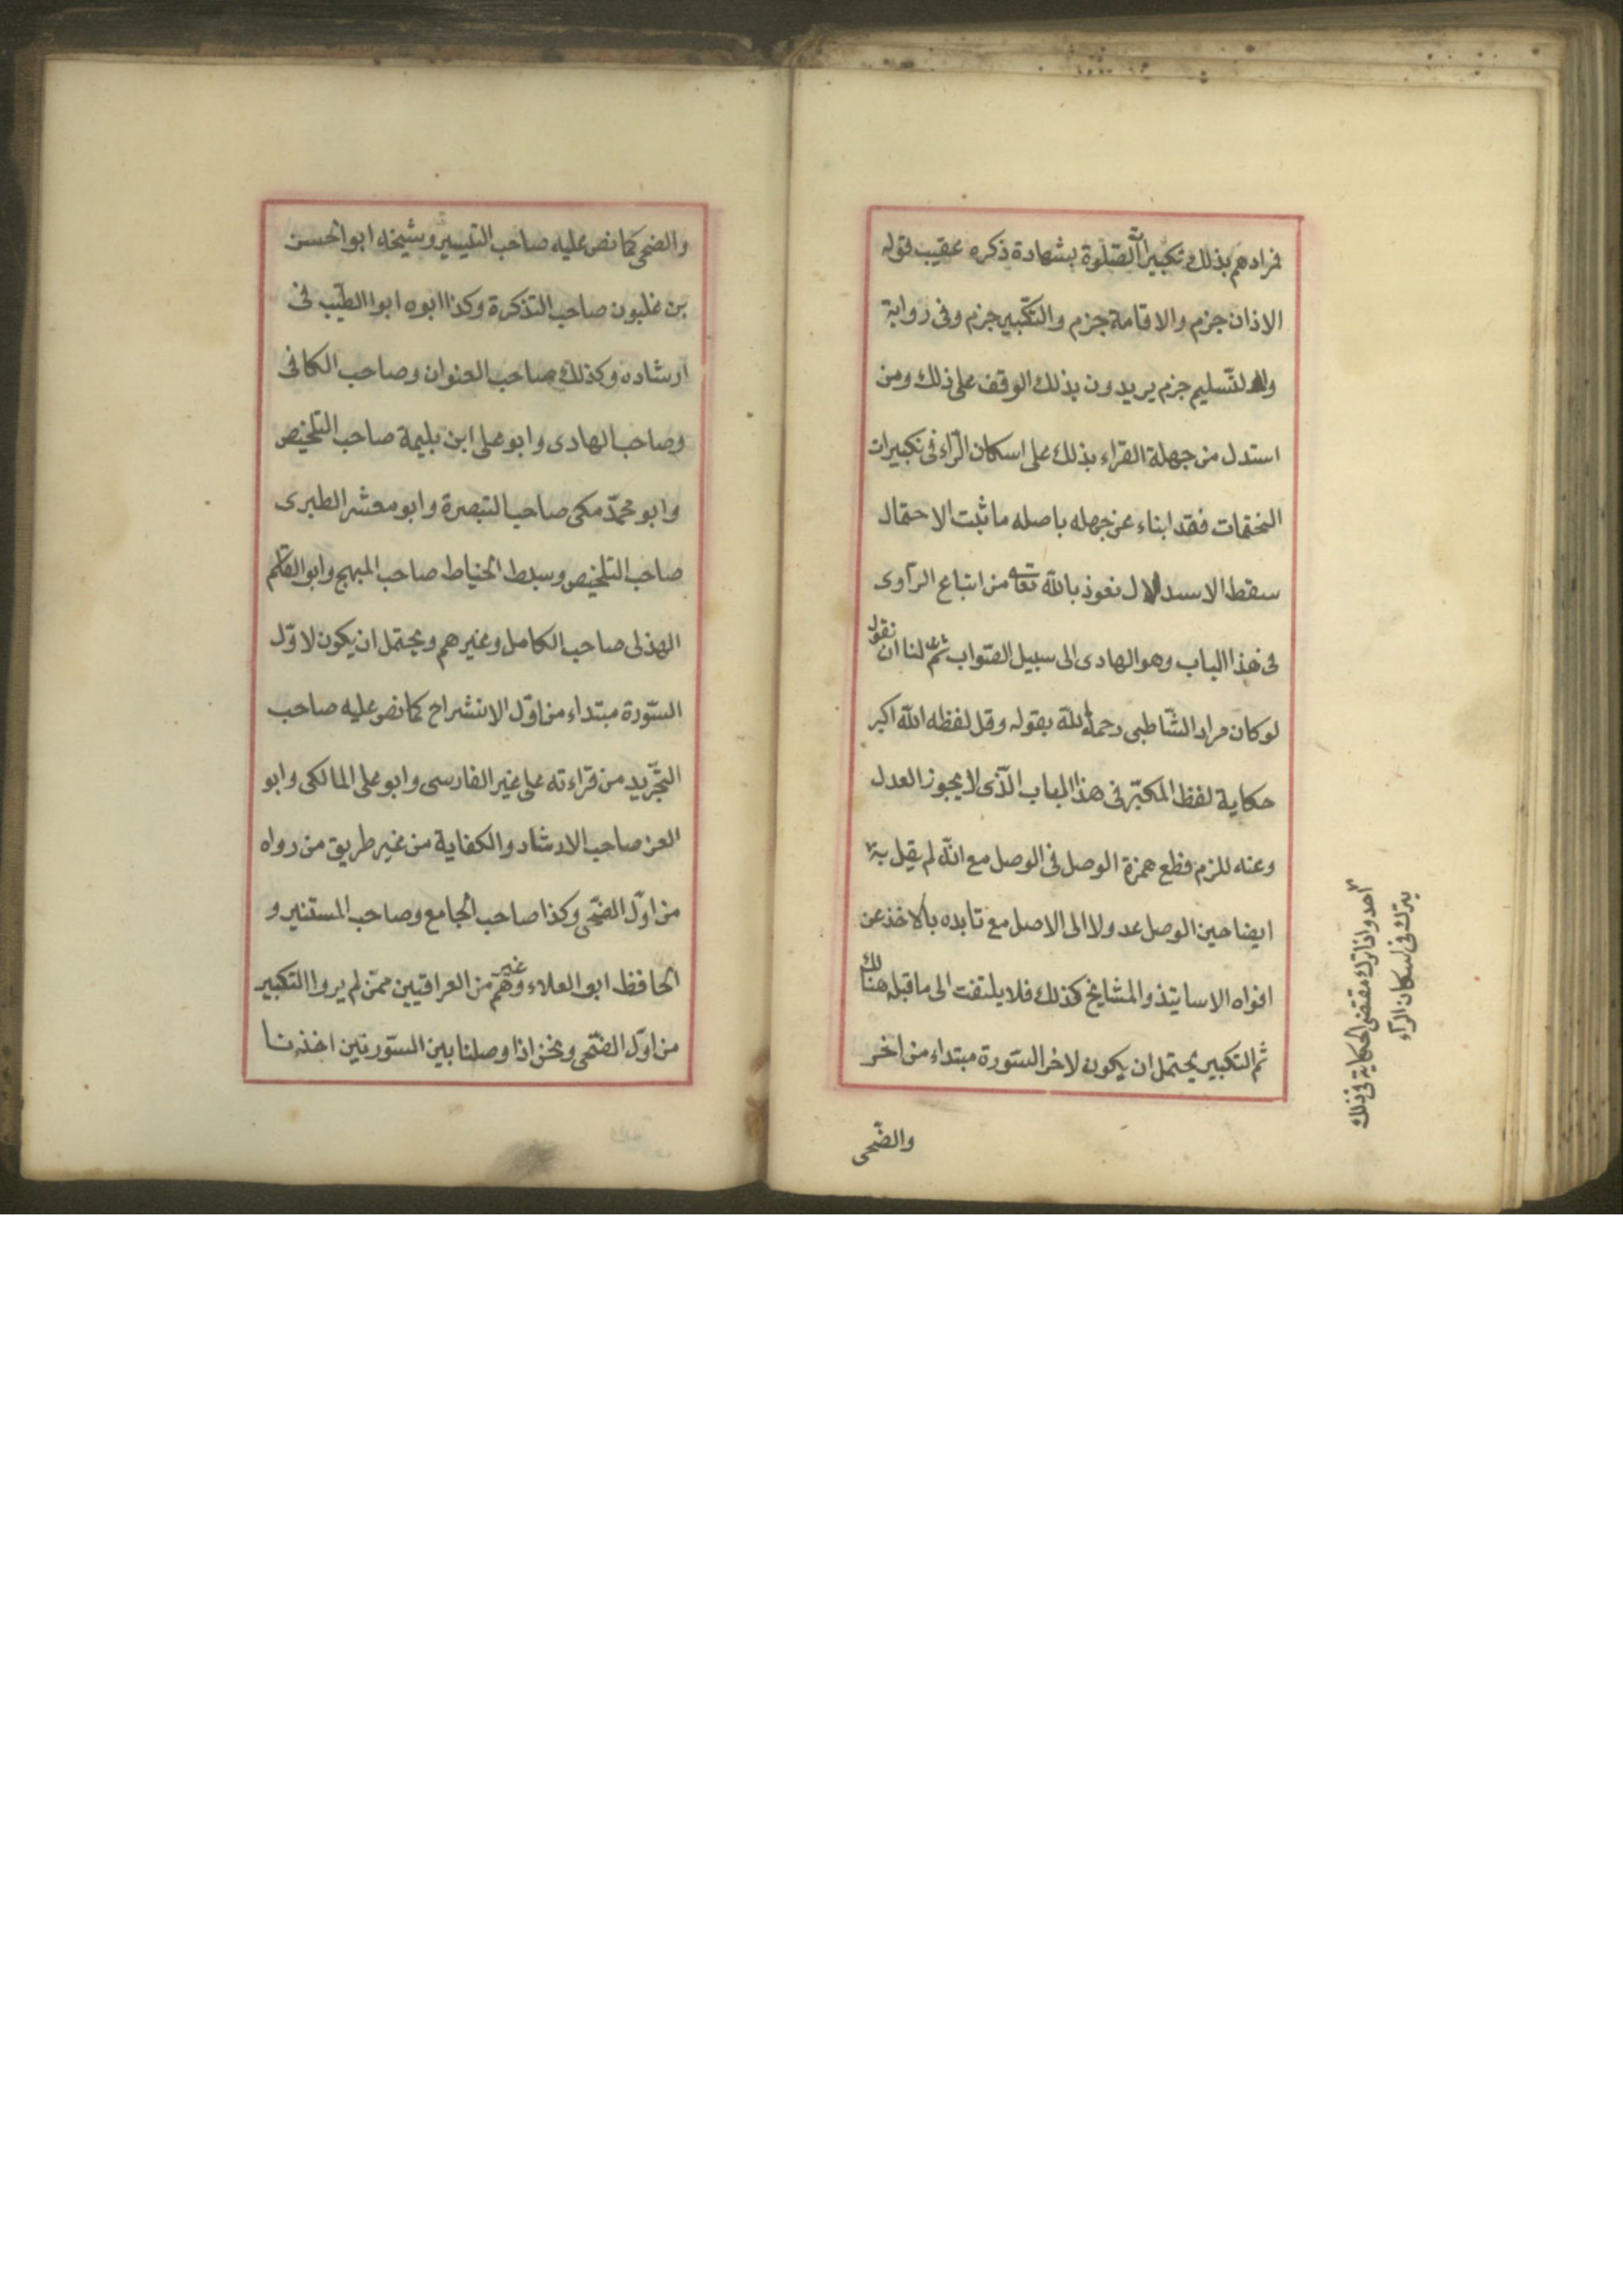 فرادهم بذلك تكبيرات الصّلوة بشهادة ذكره عقيب قوله
الاذان جزم والاقامة جزم والتكبير جزم وفى رواية
والتسليم جزم يريدون بذلك الوقف على ذلك ومن
استدل من جهلة القراء بذلك على اسكان الرّاء فى تكبيرات
الختمات فقد ابناء عن جهله باصله ما ثبت الاحتمال
سقط الاستدلال نعوذ بالله تعالى من اتباع الرآوى
فى هذا الباب وهو الهادى الى سبيل الصّواب ثم لنا ان نقول
لو كان مراد الشّاطبى رحمه الله بقوله وقل لفظه الله اكبر
حكاية لفظ المكبّر فى هذا الباب الّذى لا يجوز العدل
وعنه للزم قطع همزة الوصل فى الوصل مع انّه لم يقل به
ايضا حين الوصل عدولا الى الاصل مع تايده بالاخذ عن
افواه الاساتيذ والمشايخ كذلك فلا يلتفت الى ما قبل هنالك
ثم التكبير يحتمل ان يكون لاخر السّورة مبتداء من اخر
والضّحى
احد واذا ترك مقتضى الحكاية فى ذلك
يترك فى اسكان الرّاء
والضحى كما نص عليه صاحب التيسير وشيخه ابو الحسن
بن غلبون صاحب التذكرة وكذا ابوه ابو الطيّب فى
ارشاده وكذلك صاحب العنوان وصاحب الكافى
وصاحب الهادى وابو على ابن بليمة صاحب التلخيص
وابو محمّد مكى صاحب التبصرة وابو معشر الطبرى
صاحب التلخيص وسبط الخياط صاحب المبهج وابو القاسم
الهذلى صاحب الكامل وغيرهم ويحتمل ان يكون لاوّل
السّورة مبتداء من اوّل الانشراح كما نص عليه صاحب
التجّريد من قراءته على غير الفارسى وابو على المالكى وابو
العز صاحب الارشاد والكفاية من غير طريق من رواه
من اوّل الضّحى وكذا صاحب الجامع وصاحب المستنير و
الحافظ ابو العلاء وغيرهم من العراقيين ممّن لم يروا التكبير
من اوّل الضّحى ونحن اذا وصلنا بين السّورتين اخذنا